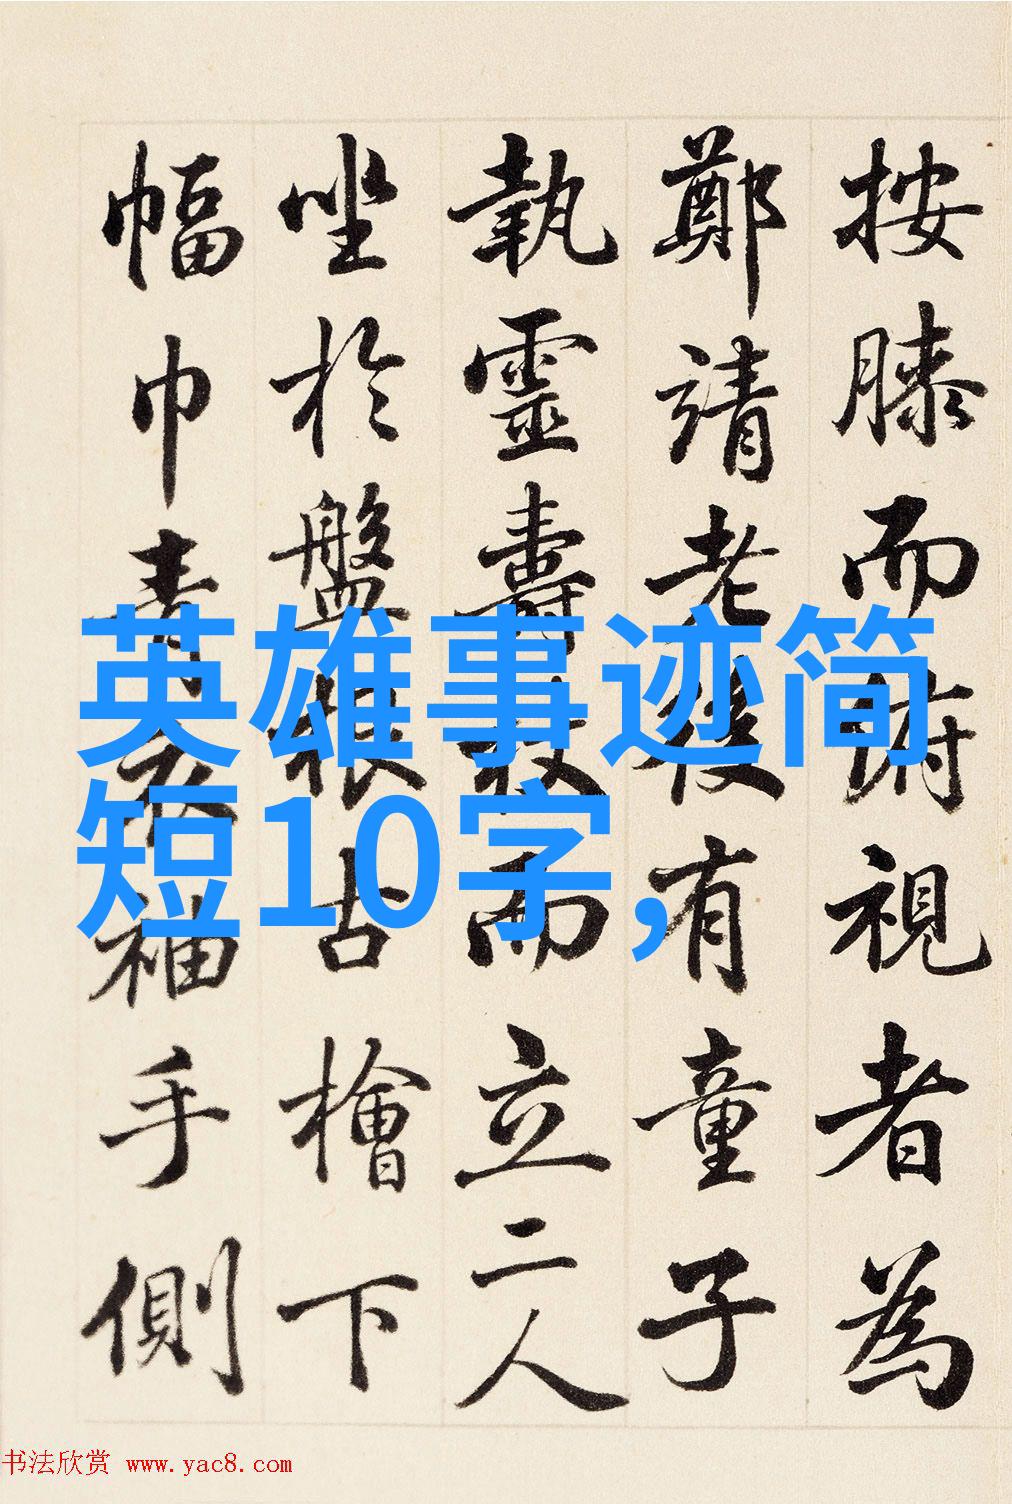 按膝而俯視者為
鄭靖老後有童子
執靈壽杖而立二人
坐於盤根古檜下
幅巾青衣袖手側
英雄事迹简
短10字,
书法欣赏 www.yac8.com